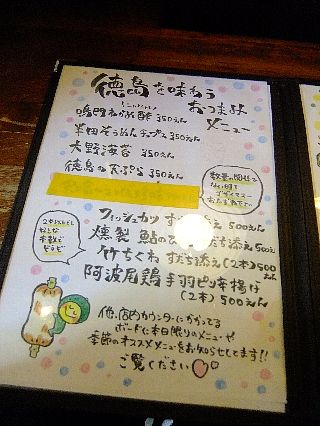 徳島を味わう
おつまみ
メニュー
鳴門わかめ酢 350えん
半田そうめんチップス 350えん
大野海苔 350えん
徳島な天ぷら 350えん
数量の関係で
ない時も
ございます
フィッシュカツ すだち添え 500えん
燻製 鮎の すだち添え 500えん
竹ちくわ すだち添え(2本)500えん
阿波尾鶏 手羽ピリ辛揚げ
(2本) 500えん
2本以外にも
好きな
本数で
どうぞ
他、店内カウンターにかかってる
ボードに本日限りのメニューや
季節のオススメメニューをお知らせしてます!!
ご覧ください